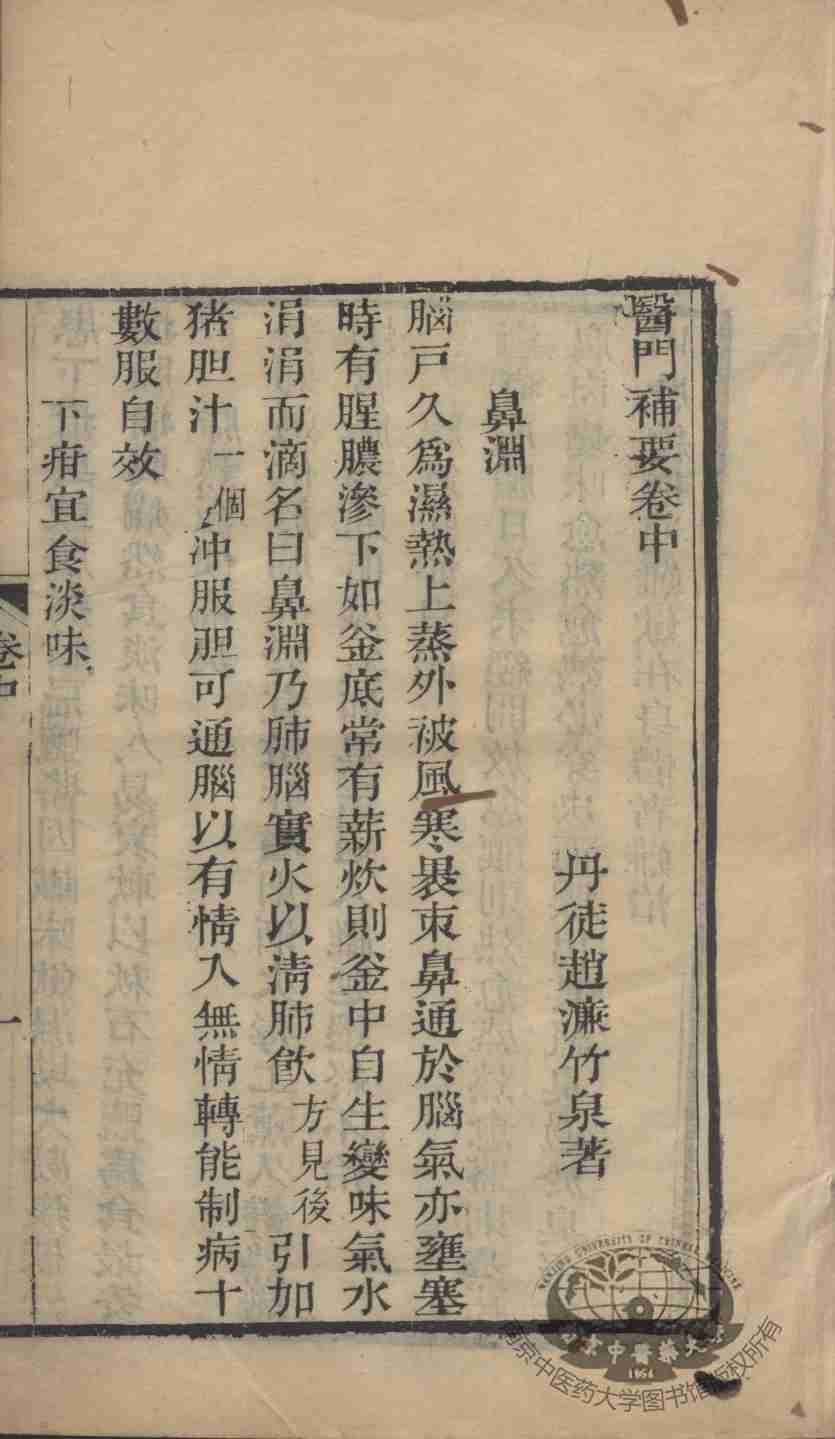 醫門補要卷中
丹徒趙濂竹泉著
鼻淵
脳戸久爲濕熱上蒸外被風寒裹束鼻通於腦氣亦壅塞
時有腥膿滲下如釜底常有薪炊則釜中自生變味氣水
涓涓而滴名曰鼻淵乃肺腦實火以清肺飮方見後引加
猪胆汁一個冲服胆可通腦以有情入無情轉能制病十
數服自效
下疳宜食淡味
卷中
一
NANJING UNIVERSITY OF CHINESE MEDICINE
南京中醫藥大學
1954
南京中医药大学图书馆版权所有